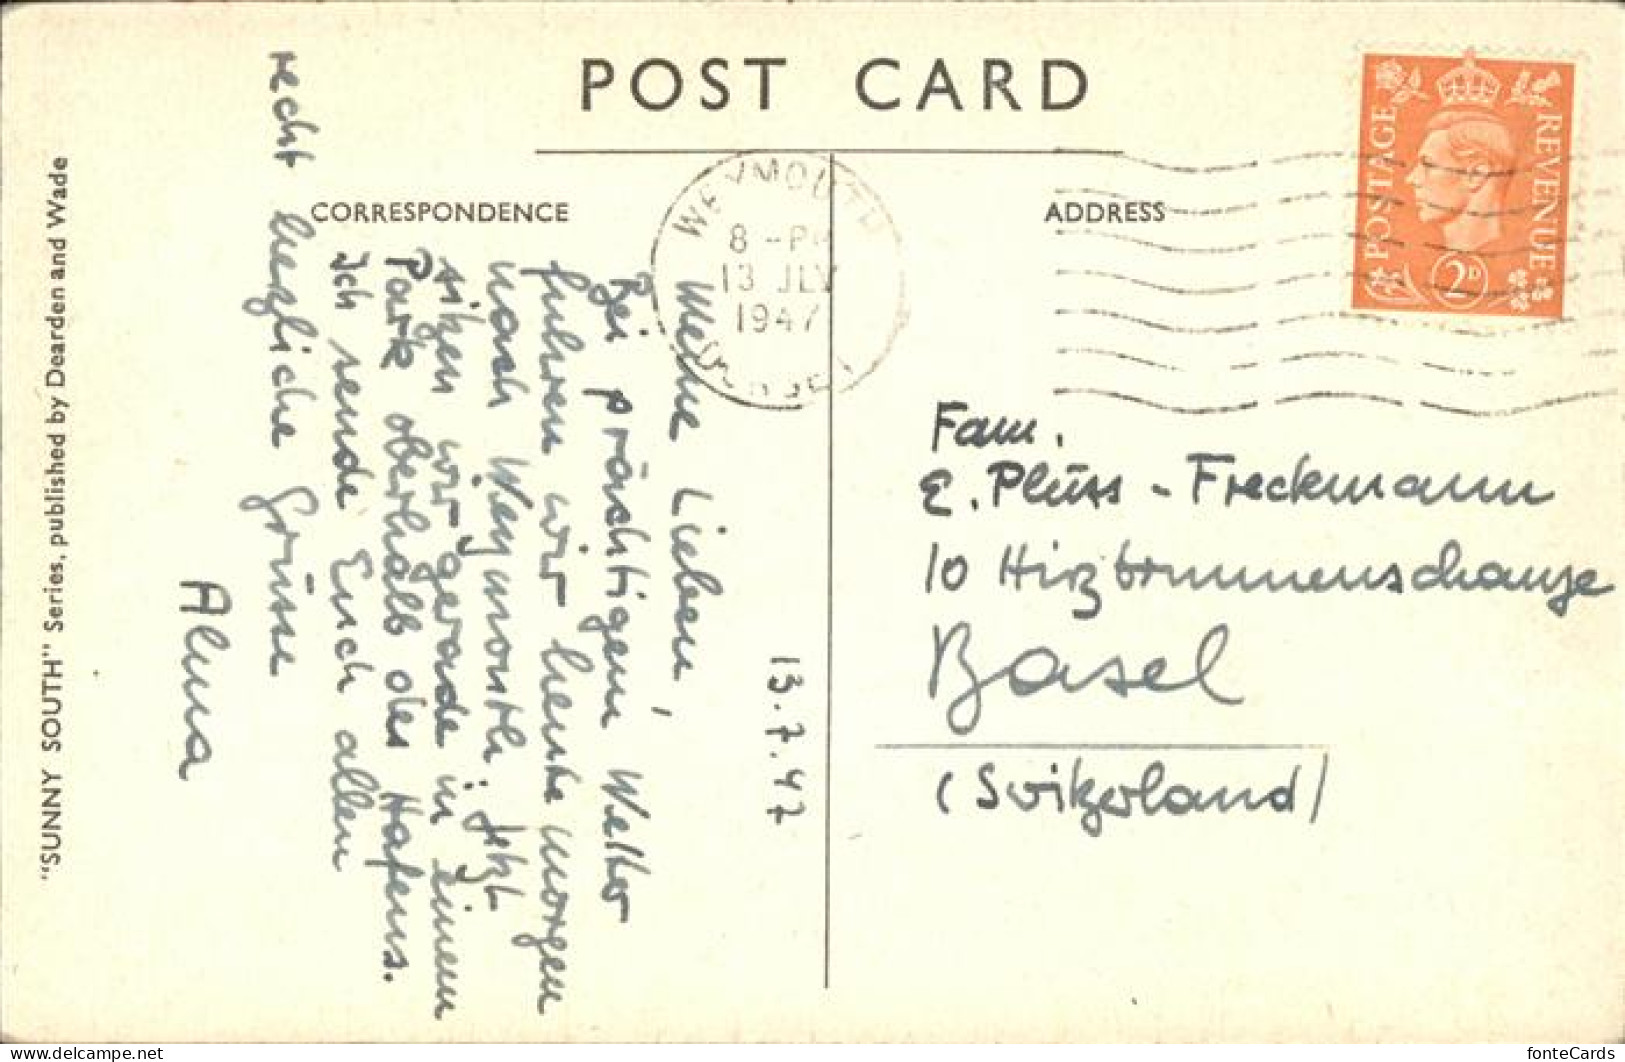 POST CARD
CORRESPONDENCE
ADDRESS
WEYMOUTH
8 - PM
13 JLY
1947
DORSET
POSTAGE
REVENUE
2D
13.7.47
Meine Lieben,
Bei prächtigem Wetter
fuhren wir heute morgen
nach Weymouth. Jetzt
sitzen wir gerade in einem
Park oberhalb des Hafens.
Ich sende Euch allen
recht herzliche Grüsse
Alma
Fam.
E. Plüss - Freckmann
10 Hirzbrunnenschanze
Basel
(Switzerland)
"SUNNY SOUTH" Series, published by Dearden and Wade
fonteCards
https://www.delcampe.net